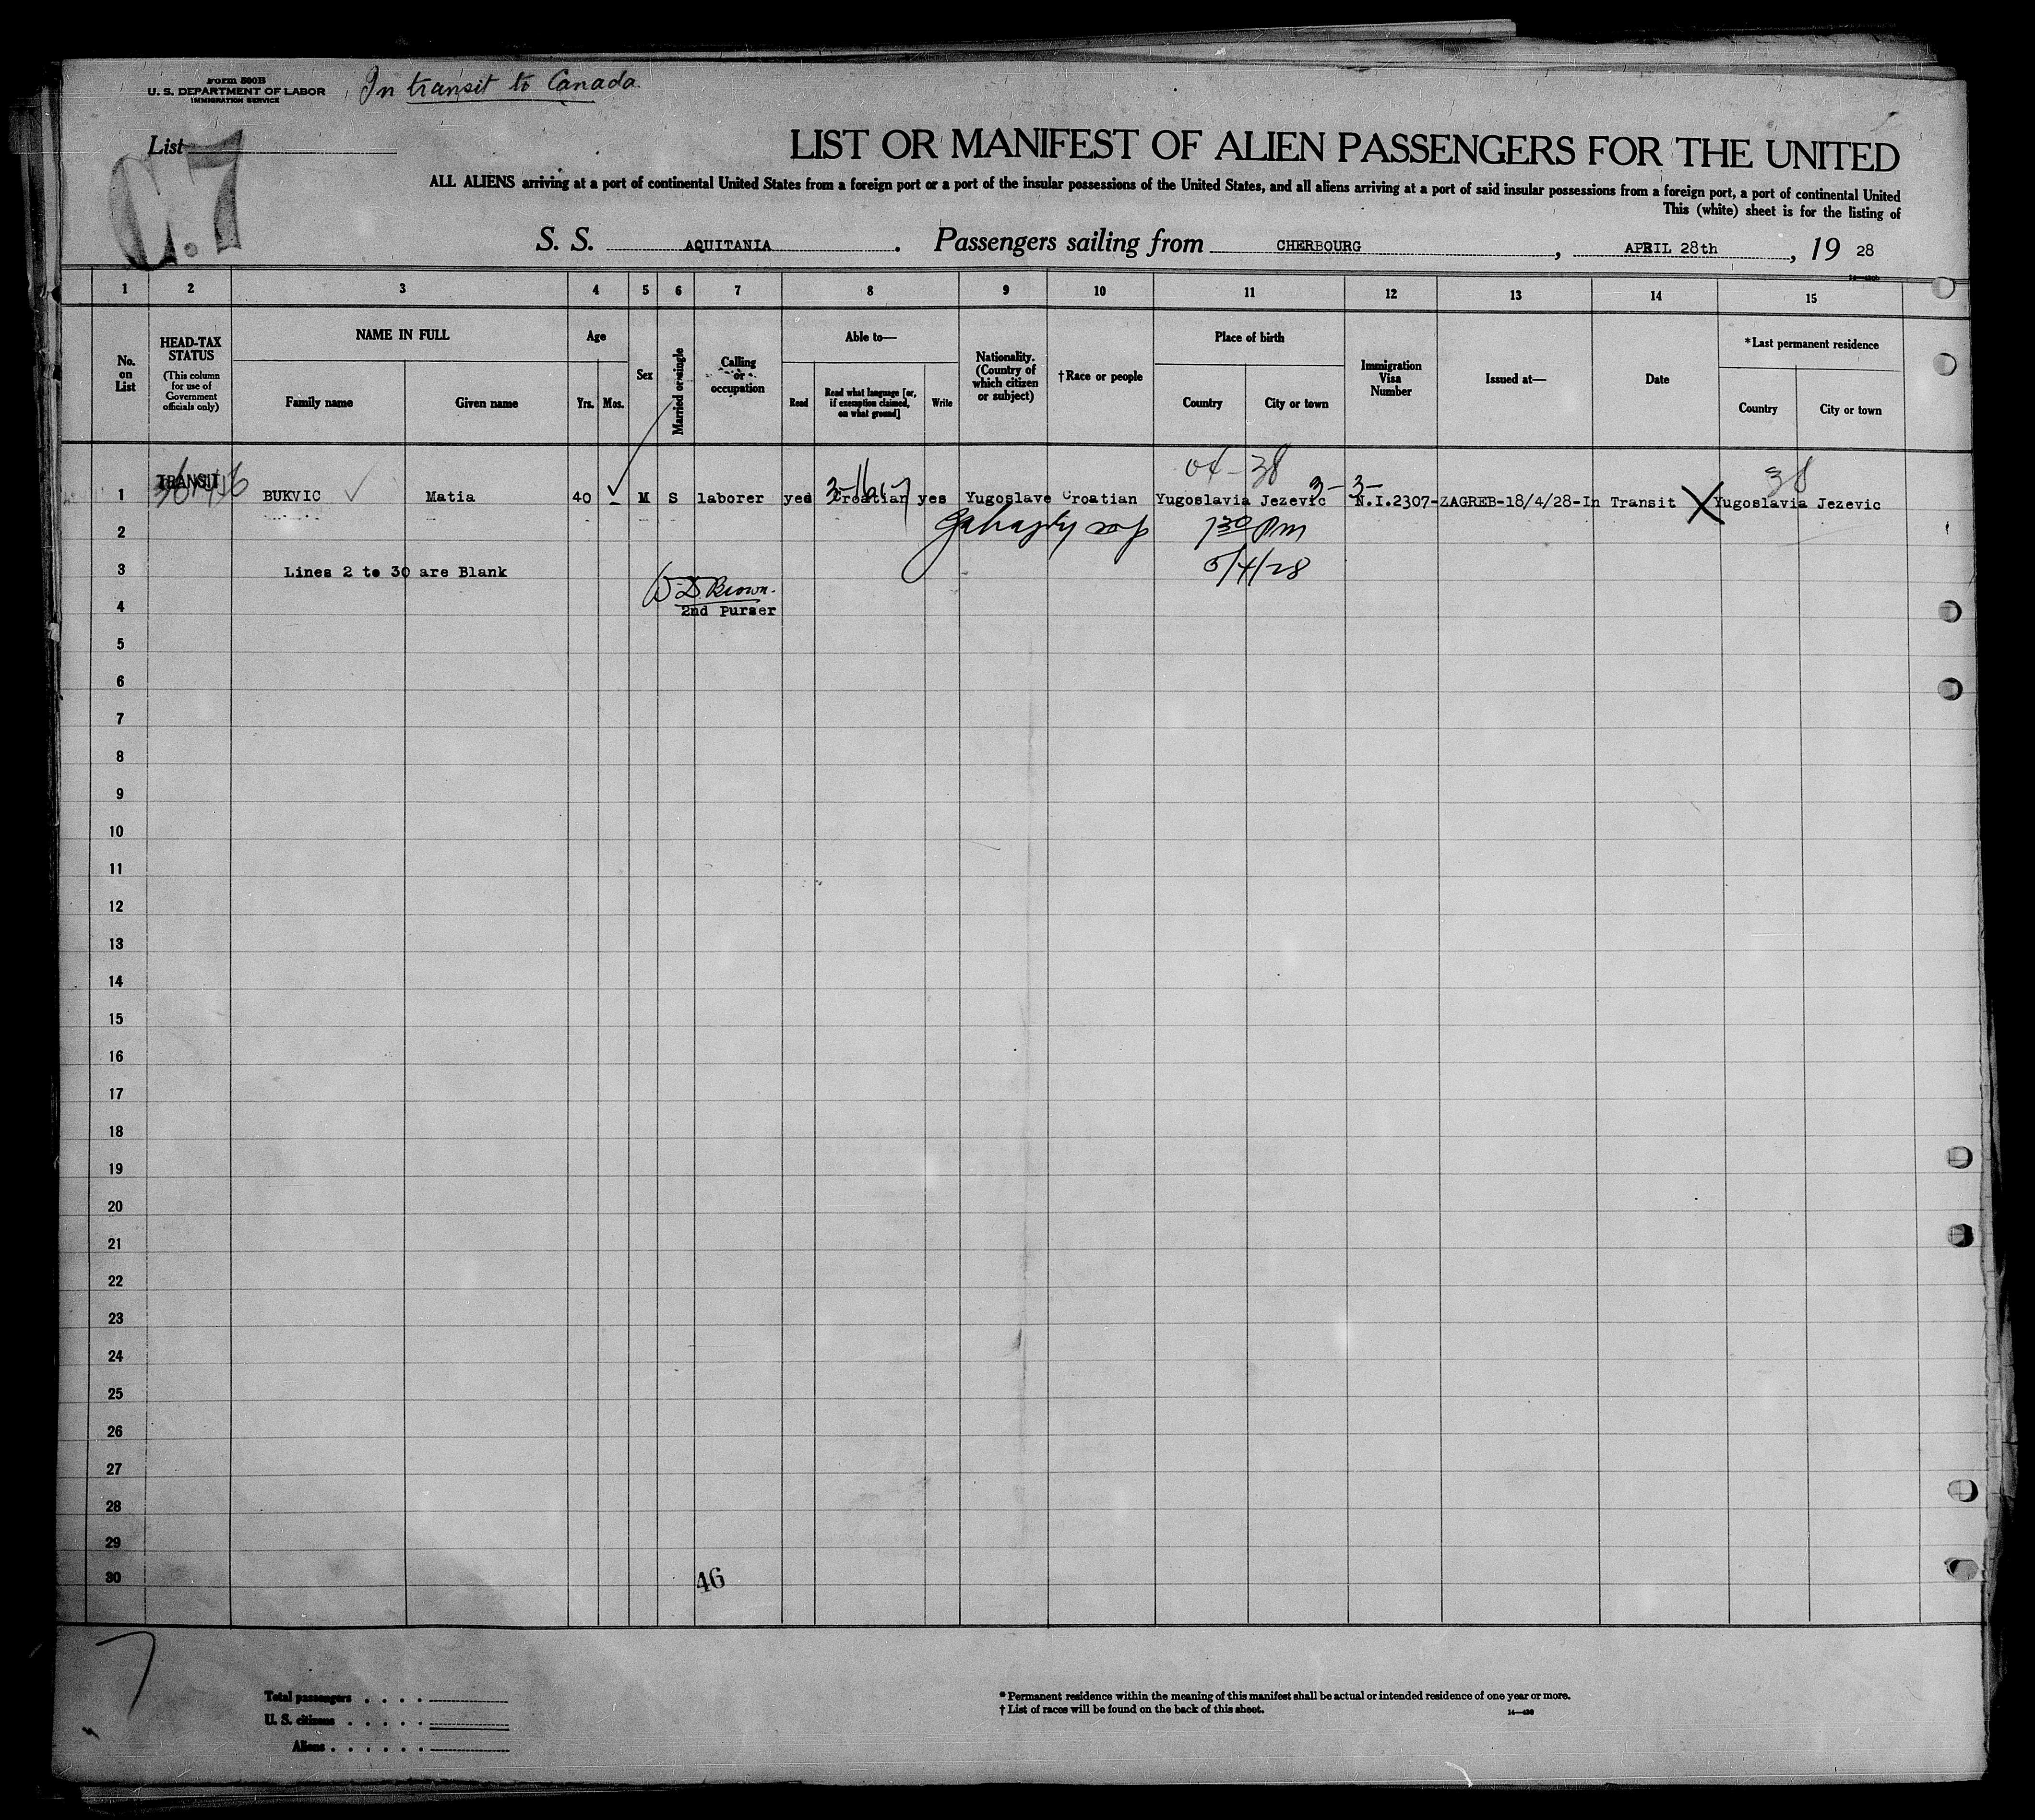 Form 500B
U. S. DEPARTMENT OF LABOR
IMMIGRATION SERVICE
In transit to Canada
List
C.7
LIST OR MANIFEST OF ALIEN PASSENGERS FOR THE UNITED
ALL ALIENS arriving at a port of continental United States from a foreign port or a port of the insular possessions of the United States, and all aliens arriving at a port of said insular possessions from a foreign port, a port of continental United
This (white) sheet is for the listing of
S. S. AQUITANIA. Passengers sailing from CHERBOURG, APRIL 28th, 19 28
1 2 3 4 5 6 7 8 9 10 11 12 13 14 15
No. on List
HEAD-TAX STATUS
(This column for use of Government officials only)
NAME IN FULL
Family name Given name
Age
Yrs. Mos.
Sex
Married or single
Calling or occupation
Able to—
Read
Read what language [or, if exemption claimed, on what ground]
Write
Nationality. (Country of which citizen or subject)
†Race or people
Place of birth
Country City or town
Immigration Visa Number
Issued at—
Date
*Last permanent residence
Country City or town
04-38 38
3-3-
1 TRANSIT BUKVIC Matia 40 M S laborer yes Croatian yes Yugoslave Croatian Yugoslavia Jezevic N.I.2307-ZAGREB-18/4/28-In Transit X Yugoslavia Jezevic
2 1 30 Pm
3 Lines 2 to 30 are Blank 5/4/28
D. Brown.
4 2nd Purser
5
6
7
8
9
10
11
12
13
14
15
16
17
18
19
20
21
22
23
24
25
26
27
28
29
30
46
7
Total passengers . . . .
U. S. citizens . . . . .
Aliens . . . . . .
* Permanent residence within the meaning of this manifest shall be actual or intended residence of one year or more.
† List of races will be found on the back of this sheet.